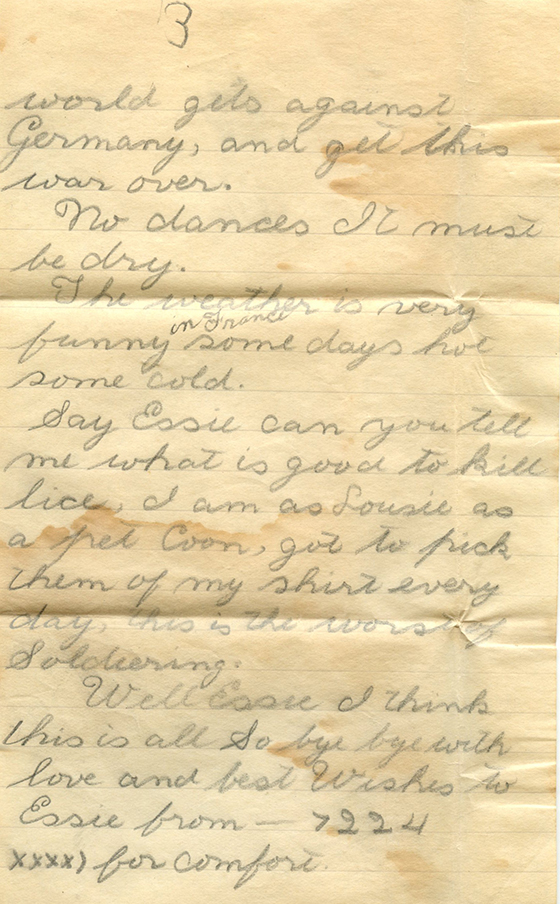 3
world gets against
Germany, and get this
war over.
No dances It must
be dry.
The weather is very
in France
funny some days hot
some cold.
Say Essie can you tell
me what is good to kill
lice, I am as Lousie as
a pet Coon, got to pick
them of my shirt every
day, this is the worst of
Soldiering.
Well Essie I think
this is all So bye bye with
love and best Wishes to
Essie from — 7224
xxxx) for comfort.